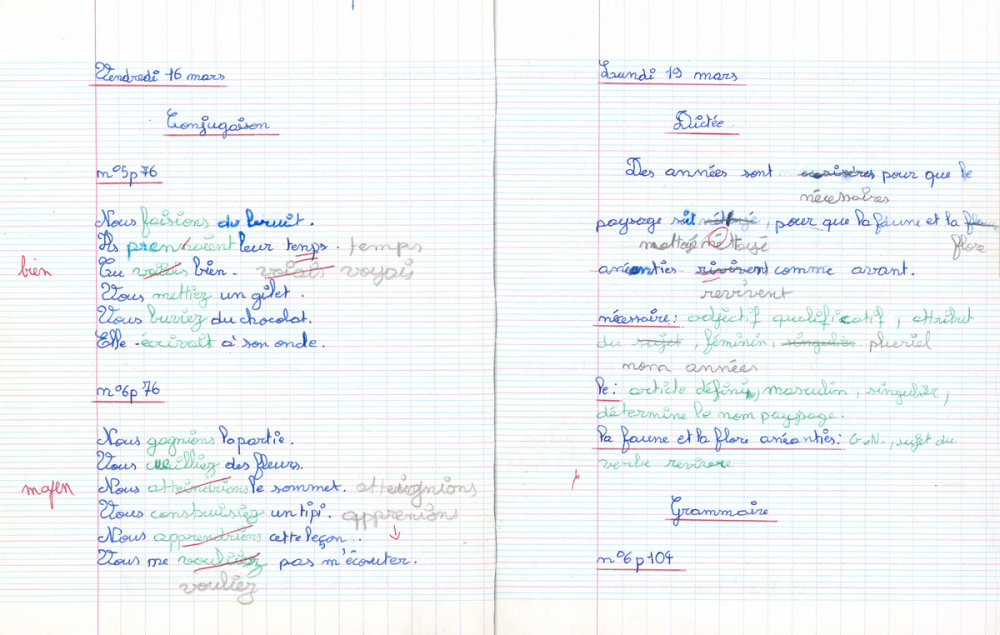 Vendredi 16 mars
Conjugaison
n°5p76
Nous faisions du bruit.
Ils prenaient leur temps. temps
bien Tu voiais bien. voiais voyais
Vous mettiez un gilet.
Vous buviez du chocolat.
Elle écrivait à son oncle.
n°6p76
Nous gagnions la partie.
Vous cueilliez des fleurs.
moyen Nous atteindrions le sommet. atteignions
Vous construisiez un tipi. apprenions
Nous apprendrions cette leçon.
Vous me vouliez pas m'écouter.
vouliez
Lundi 19 mars
Dictée
Des années sont pour que le
nécessaires
paysage soit nétoyé, pour que la faune et la
nettoyé flore
anéanties rivivent comme avant.
revivent
nécessaire: adjectif qualificatif, attribut
du sujet, féminin, singulier pluriel
nom années
le: article défini, masculin, singulier,
détermine le nom paysage.
la faune et la flore anéanties: G.N., sujet du
verbe revivre
Grammaire
n°6p104